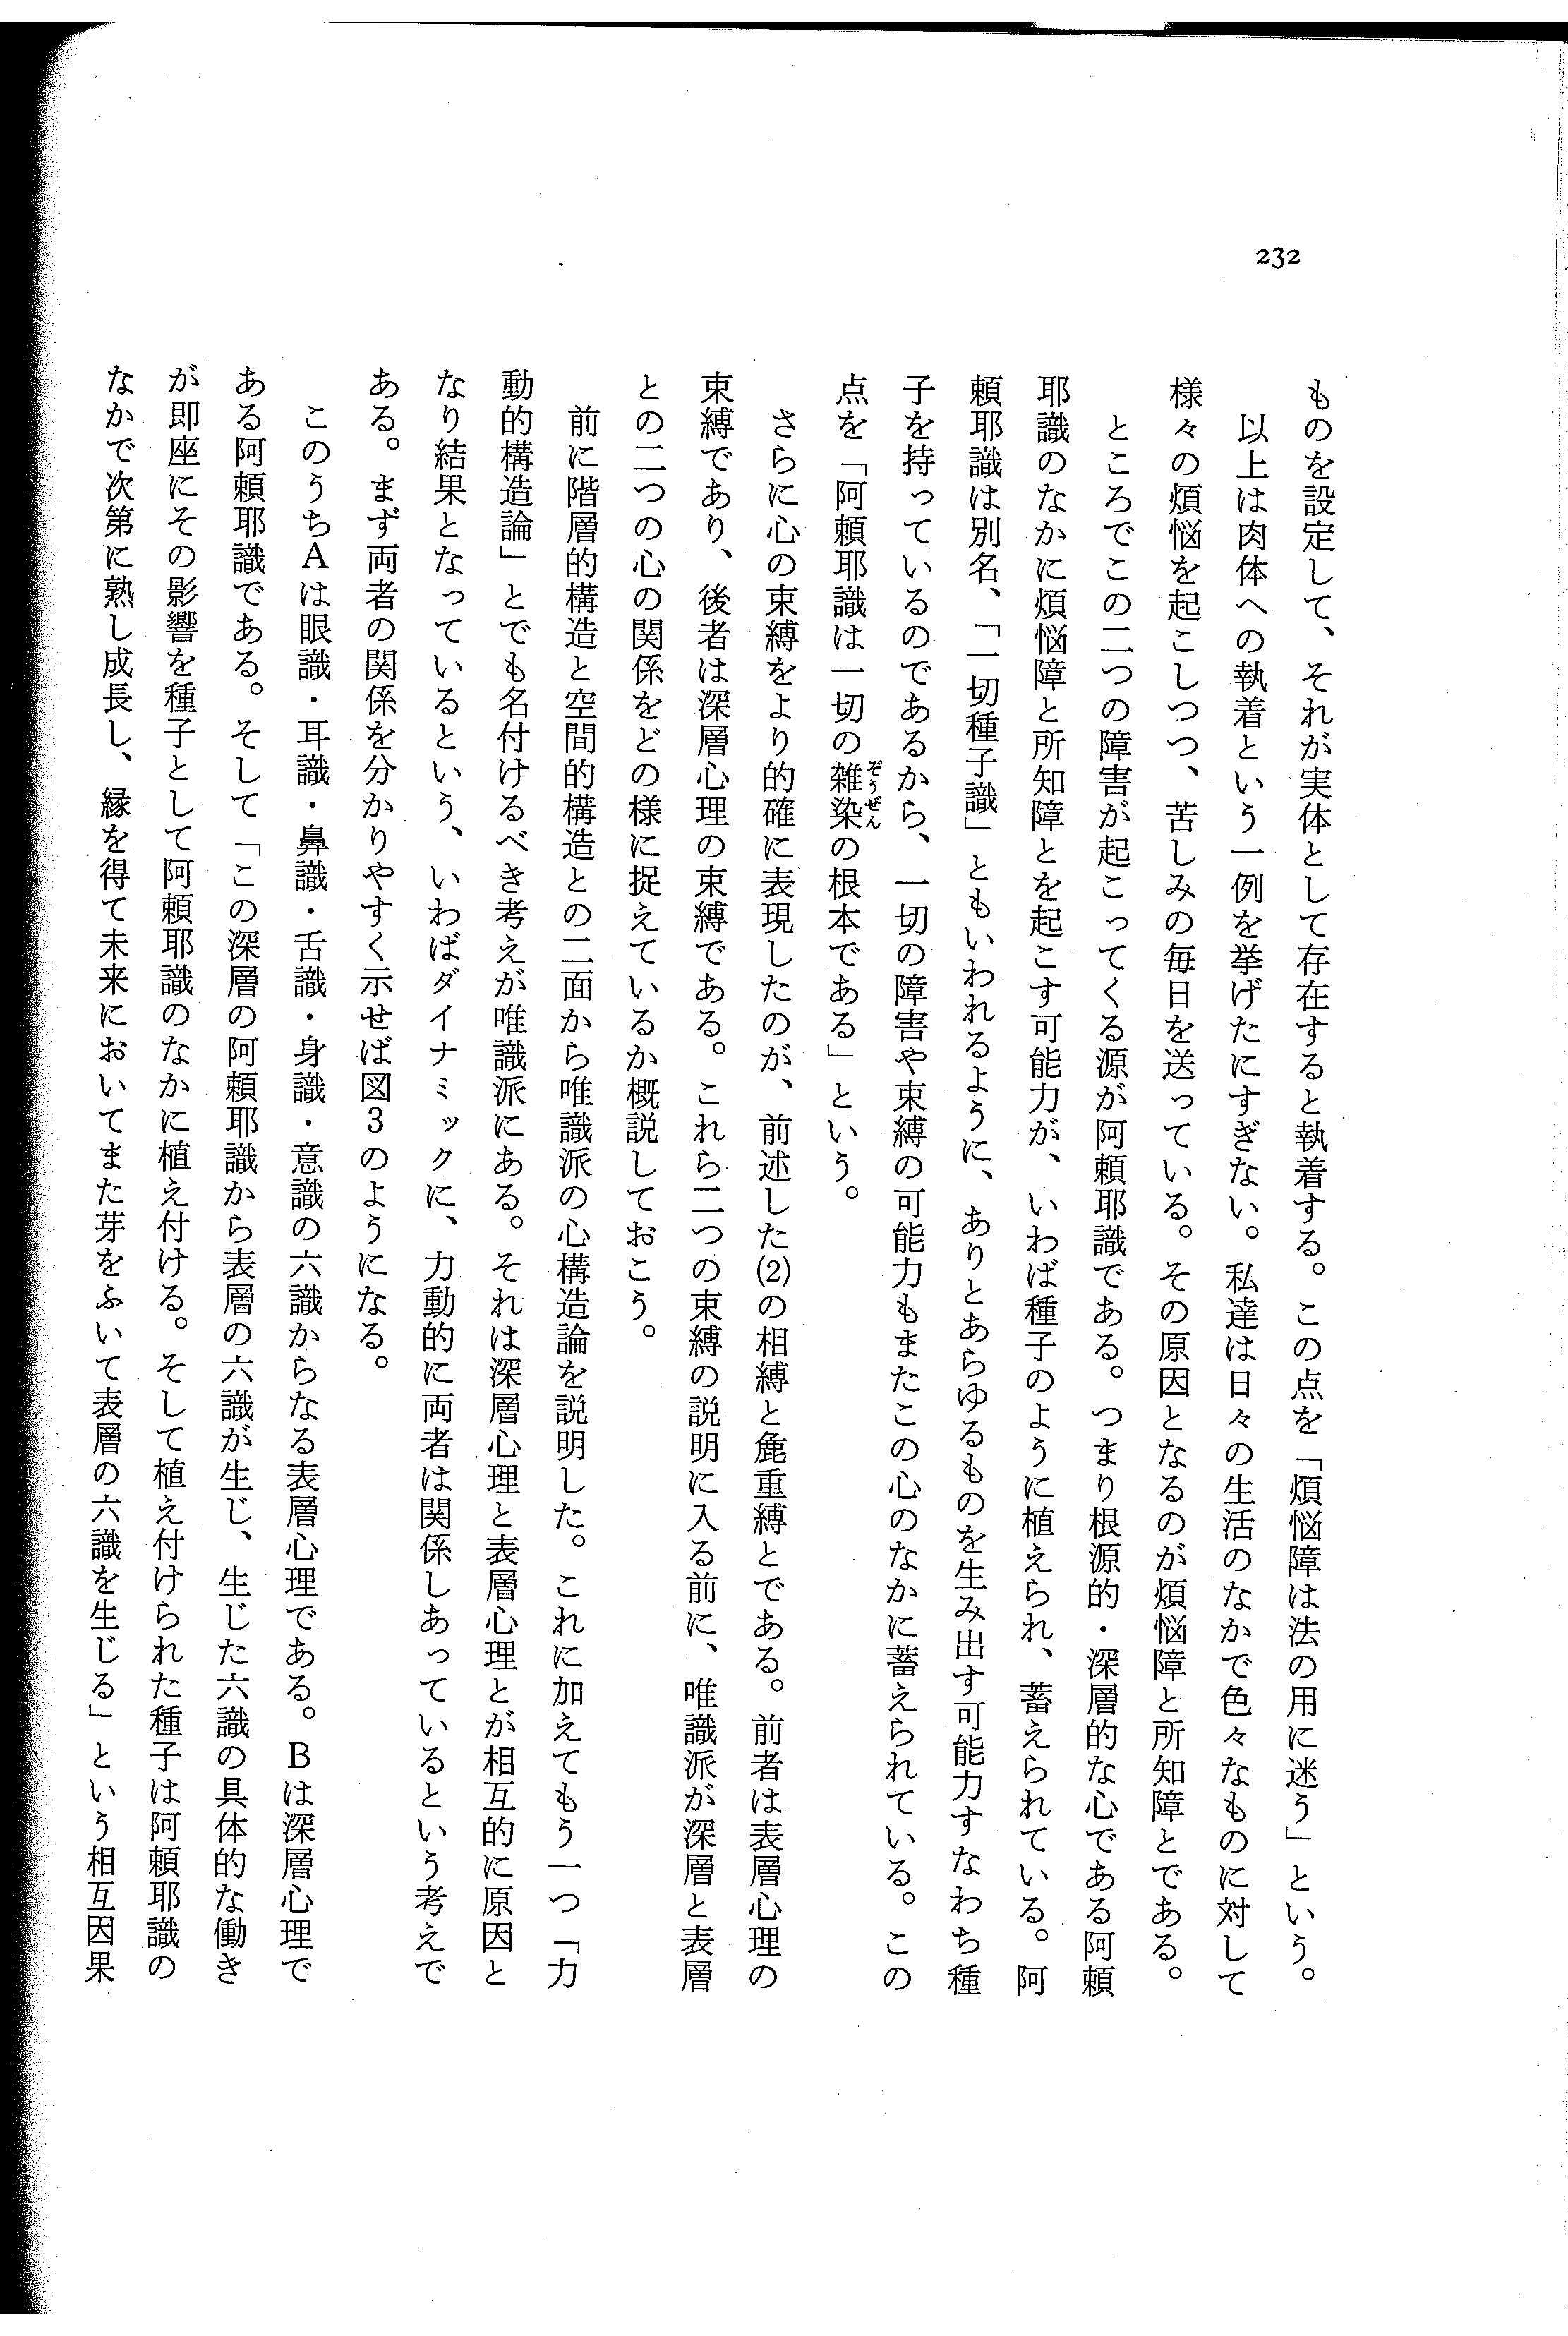 232
ものを設定して、それが実体として存在すると執着する。この点を「煩悩障は法の用に迷う」という。
以上は肉体への執着という一例を挙げたにすぎない。私達は日々の生活のなかで色々なものに対して
様々の煩悩を起こしつつ、苦しみの毎日を送っている。その原因となるのが煩悩障と所知障とである。
ところでこの二つの障害が起こってくる源が阿頼耶識である。つまり根源的・深層的な心である阿頼
耶識のなかに煩悩障と所知障とを起こす可能力が、いわば種子のように植えられ、蓄えられている。阿
頼耶識は別名、「一切種子識」ともいわれるように、ありとあらゆるものを生み出す可能力すなわち種
子を持っているのであるから、一切の障害や束縛の可能力もまたこの心のなかに蓄えられている。この
点を「阿頼耶識は一切の雑染の根本である」という。
ぞうぜん
さらに心の束縛をより的確に表現したのが、前述した(2)の相縛と麁重縛とである。前者は表層心理の
束縛であり、後者は深層心理の束縛である。これら二つの束縛の説明に入る前に、唯識派が深層と表層
との二つの心の関係をどの様に捉えているか概説しておこう。
前に階層的構造と空間的構造との二面から唯識派の心構造論を説明した。これに加えてもう一つ「力
動的構造論」とでも名付けるべき考えが唯識派にある。それは深層心理と表層心理とが相互的に原因と
なり結果となっているという、いわばダイナミックに、力動的に両者は関係しあっているという考えで
ある。まず両者の関係を分かりやすく示せば図3のようになる。
このうちAは眼識・耳識・鼻識・舌識・身識・意識の六識からなる表層心理である。Bは深層心理で
ある阿頼耶識である。そして「この深層の阿頼耶識から表層の六識が生じ、生じた六識の具体的な働き
が即座にその影響を種子として阿頼耶識のなかに植え付ける。そして植え付けられた種子は阿頼耶識の
なかで次第に熟し成長し、縁を得て未来においてまた芽をふいて表層の六識を生じる」という相互因果